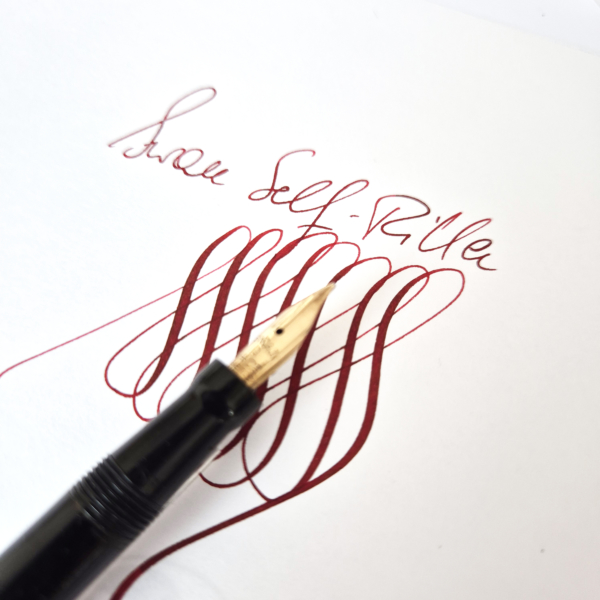 Swan Self-Filler